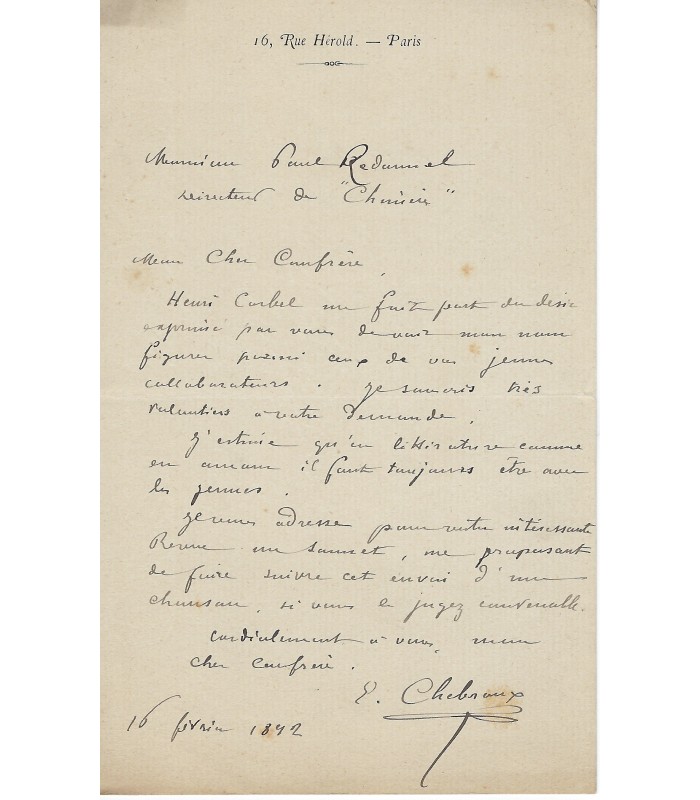 16, Rue Hérold. — Paris
Monsieur Paul Redonnel
Directeur de "Chimère"
Mon Cher Confrère,
Henri Corbel me fait part du désir
exprimé par vous de voir mon nom
figurer parmi ceux de vos jeunes
collaborateurs. Je souscris très
volontiers à votre demande.
J'estime qu'en littérature comme
en amour il faut toujours être avec
les jeunes.
Je vous adresse pour votre intéressante
Revue un sonnet, me proposant
de faire suivre cet envoi d'une
chanson, si vous le jugez convenable.
Cordialement à vous, mon
cher confrère.
E. Chebroux
16 février 1892